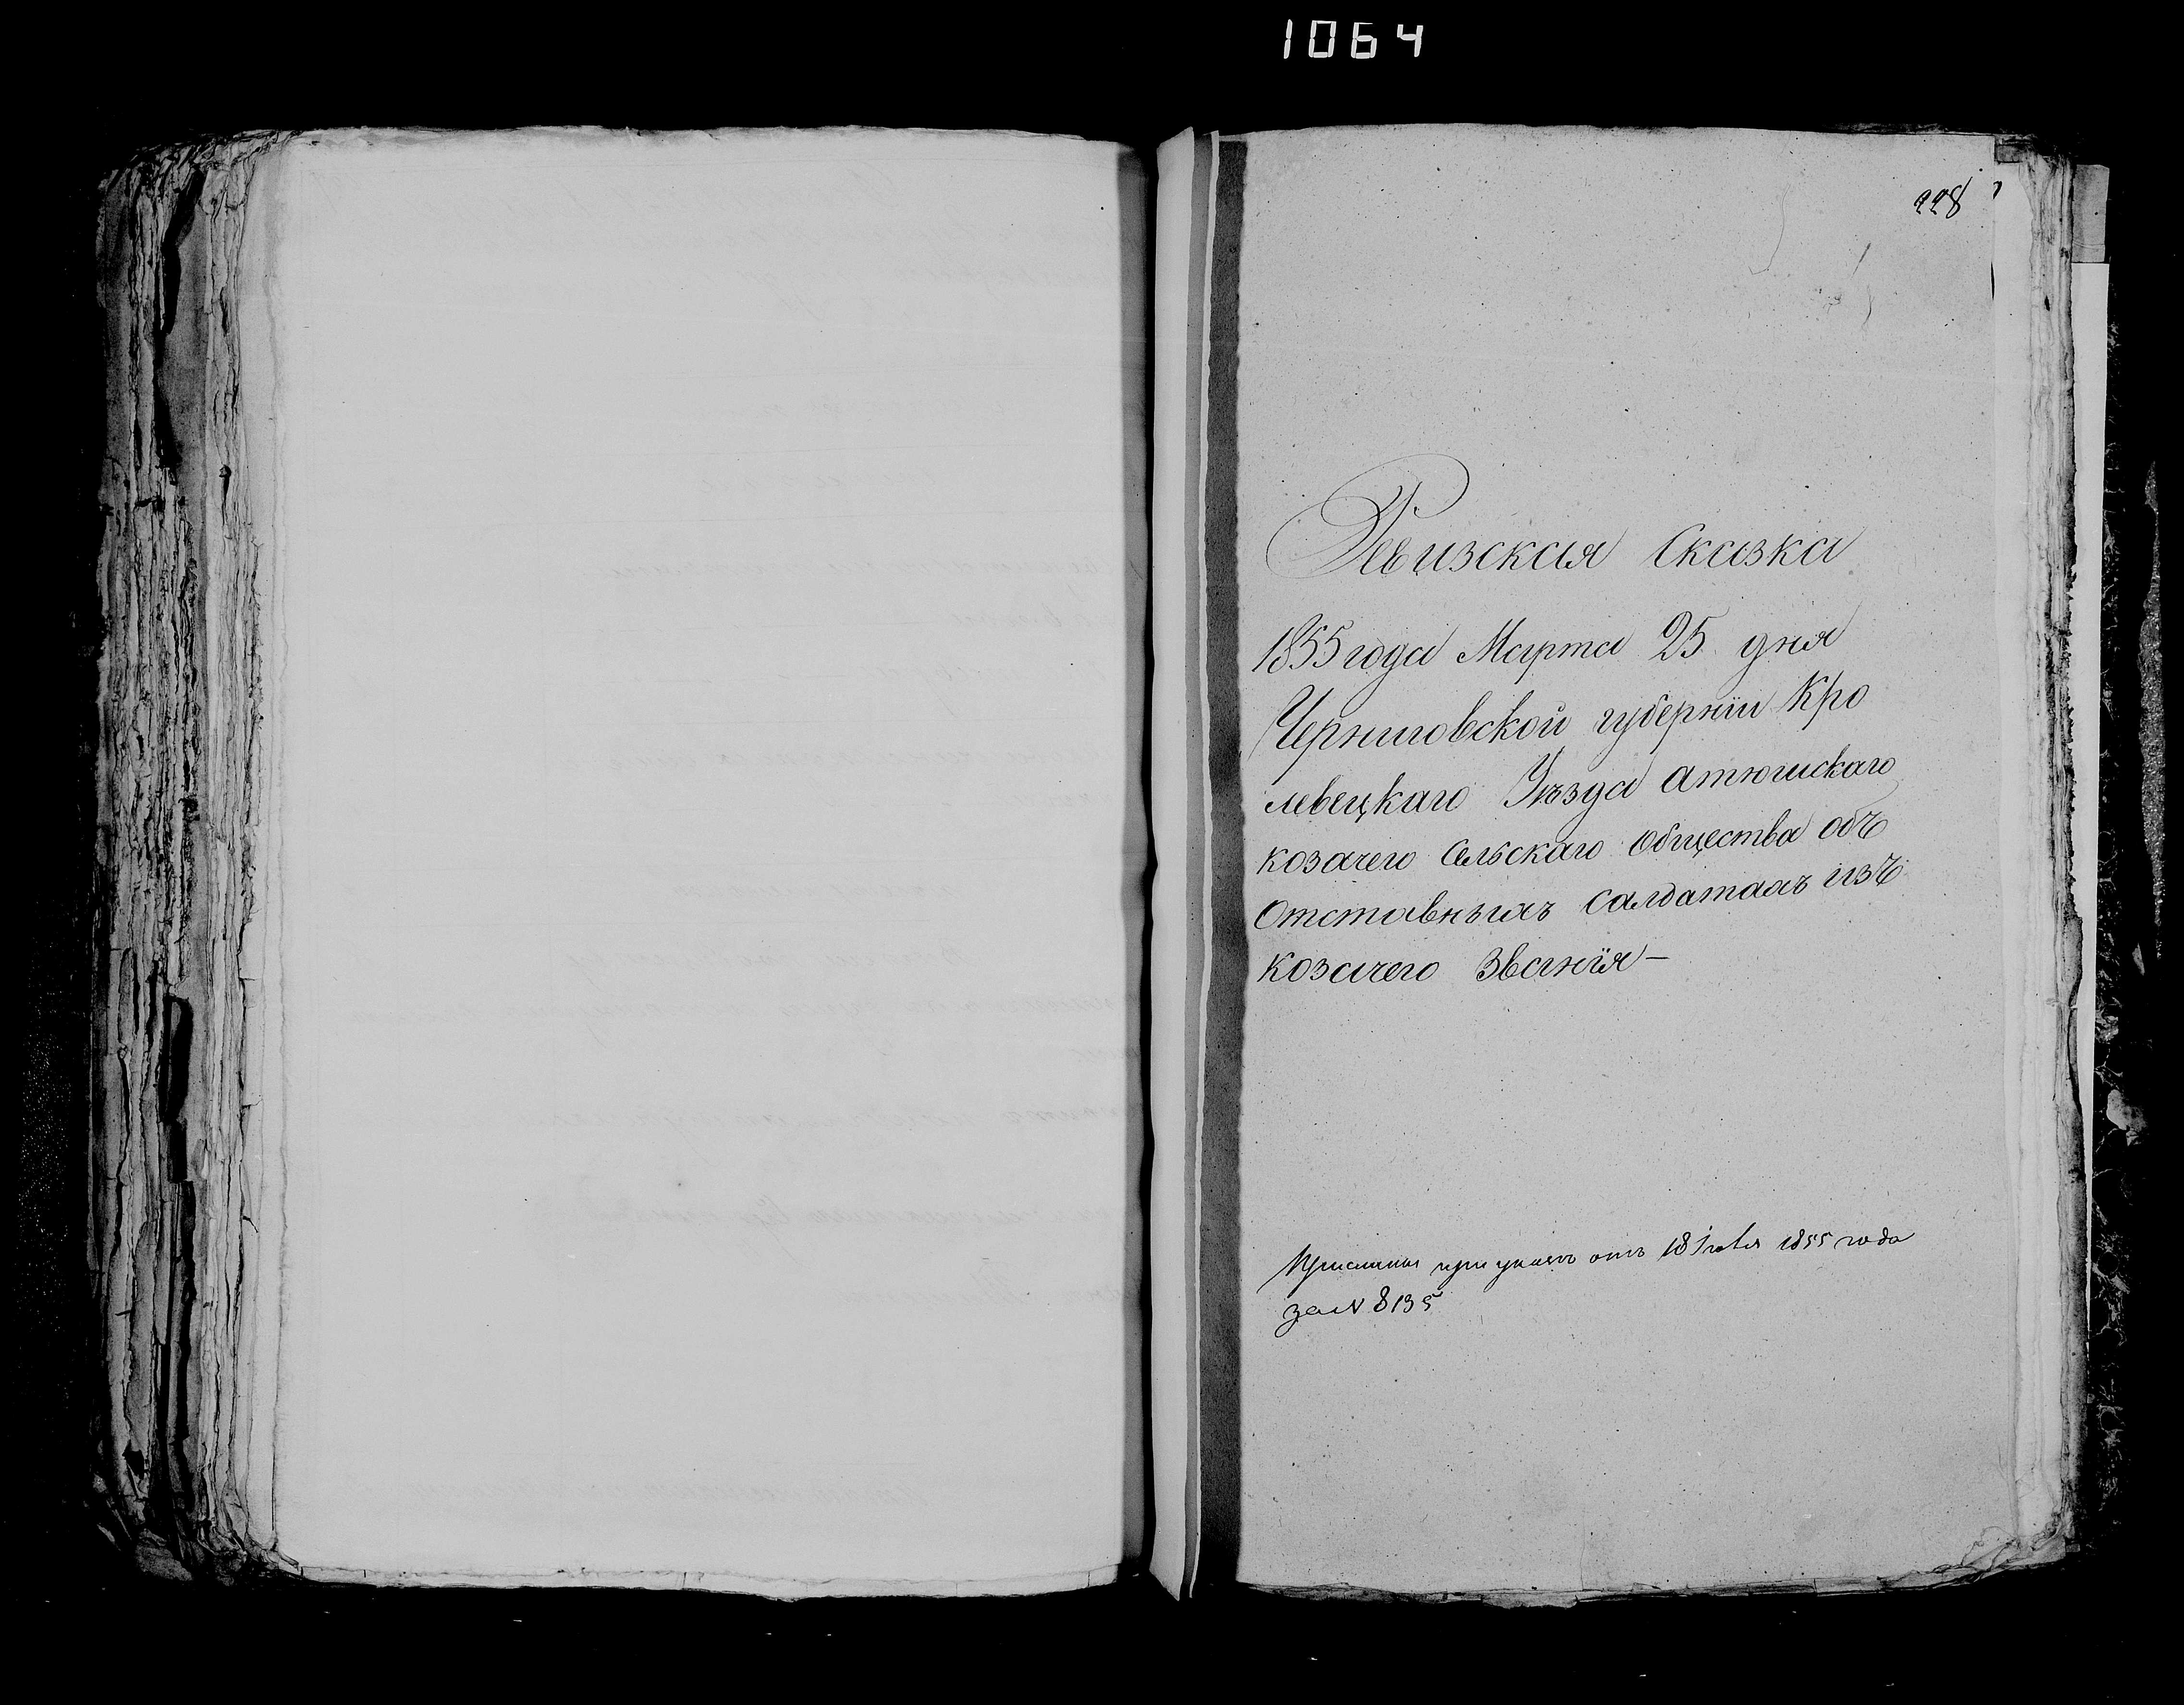 1064
228
Ревизская Сказка
1855 года Марта 25 дня
Черниговской губернïи Кро
левецкаго Уѣзда Атюшскаго
козачего Сельскаго Общества объ
Отставныхъ Салдатахъ изъ
козачего Званïя —
при отъ 18 1855 года
за N 8135